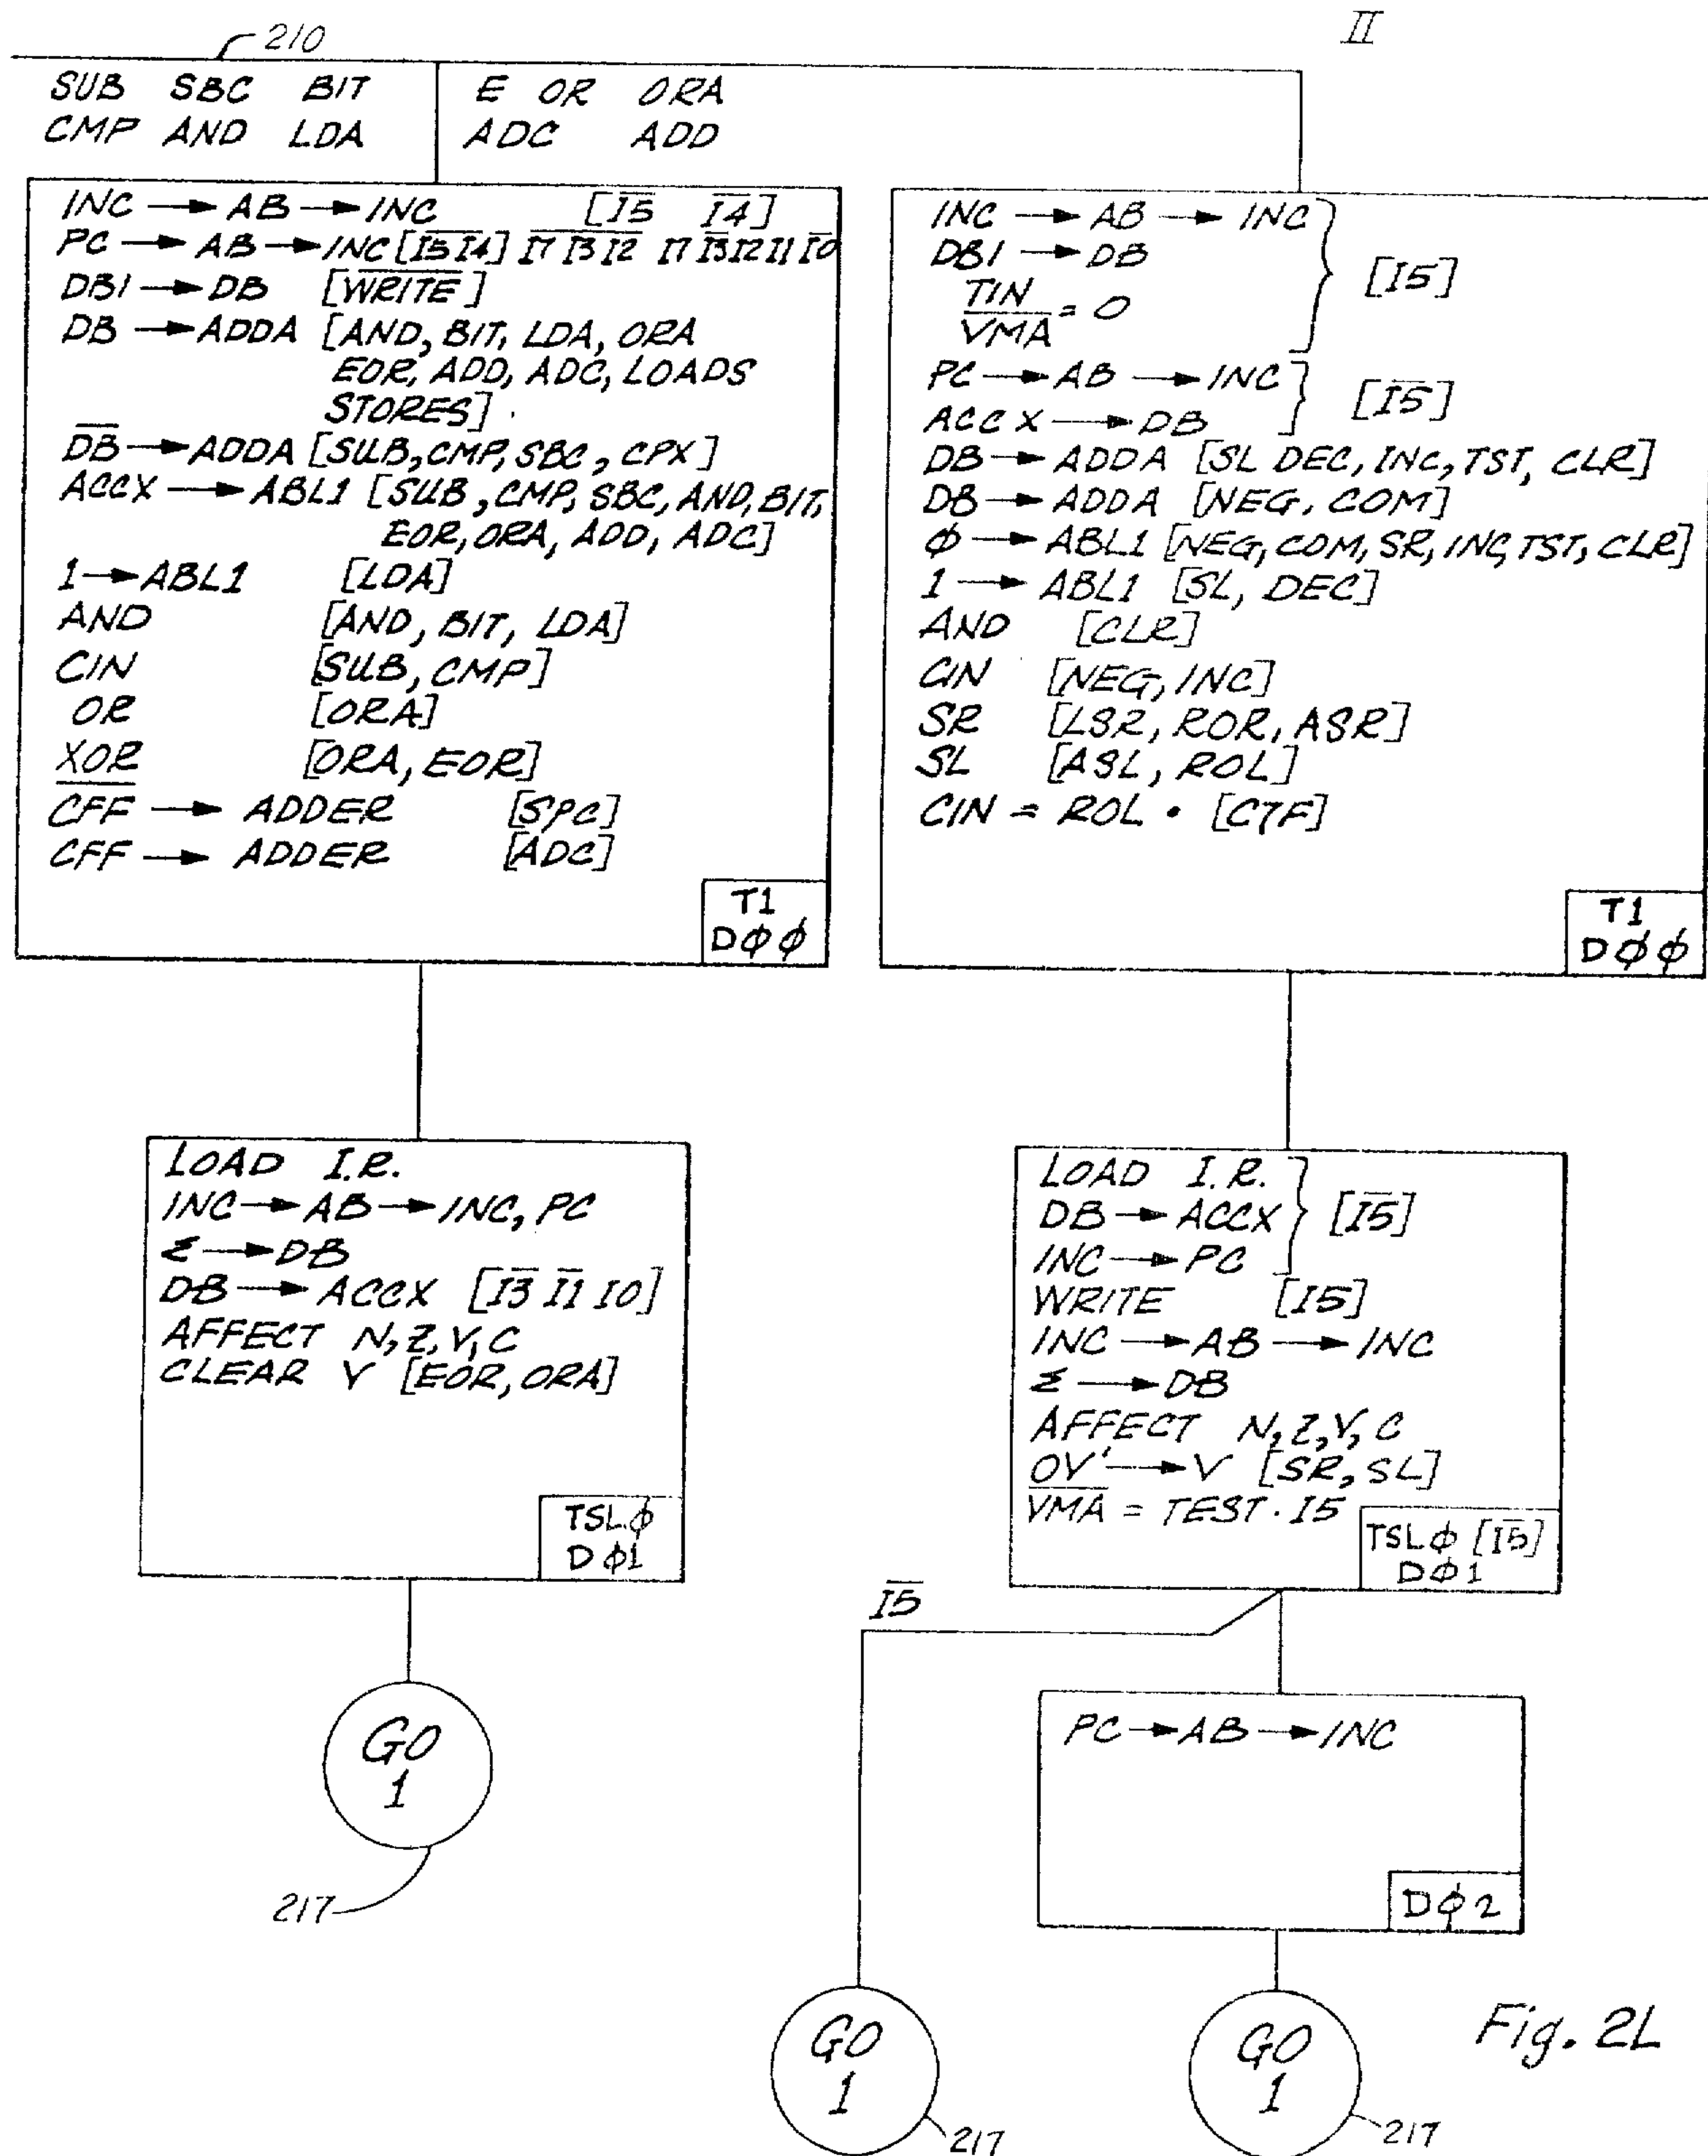 210
II
SUB SBC BIT
CMP AND LDA
E OR ORA
ADC ADD
INC → AB → INC [I̅5̅ I̅4̅]
PC → AB → INC [I̅5̅ I̅4̅] I̅7̅ I̅3̅ I̅2̅ I7 I̅3̅ I2 I1 I̅0̅
DBI → DB [W̅R̅I̅T̅E̅]
DB → ADDA [AND, BIT, LDA, ORA
EOR, ADD, ADC, LOADS
STORES]
D̅B̅ → ADDA [SUB, CMP, SBC, CPX]
ACCX → ABLI [SUB, CMP, SBC, AND, BIT,
EOR, ORA, ADD, ADC]
1 → ABLI [LDA]
AND [AND, BIT, LDA]
CIN [SUB, CMP]
OR [ORA]
XOR [ORA, EOR]
C̅F̅F̅ → ADDER [SPC]
CFF → ADDER [ADC]
T1
DØØ
INC → AB → INC
DBI → DB
TIN
V̅M̅A̅ = 0
[I5]
PC → AB → INC
ACCX → DB
[I̅5̅]
DB → ADDA [SL DEC, INC, TST, CLR]
DB → ADDA [NEG, COM]
Ø → ABLI [NEG, COM, SR, INC, TST, CLR]
1 → ABLI [SL, DEC]
AND [CLR]
CIN [NEG, INC]
SR [LSR, ROR, ASR]
SL [ASL, ROL]
CIN = ROL • [C7F]
T1
DØØ
LOAD I.R.
INC → AB → INC, PC
Σ → DB
DB → ACCX [I̅3̅ I̅1̅ I0]
AFFECT N, Z, V, C
CLEAR V [EOR, ORA]
TSL.Ø
DØ1
LOAD I.R.
DB → ACCX
INC → PC
[I̅5̅]
WRITE [I5]
INC → AB → INC
Σ → DB
AFFECT N, Z, V, C
OV' → V [SR, SL]
V̅M̅A̅ = TEST · I5
TSLØ [I̅5̅]
DØ1
I̅5̅
GO
1
217
PC → AB → INC
DØ2
GO
1
217
GO
1
217
Fig. 2L